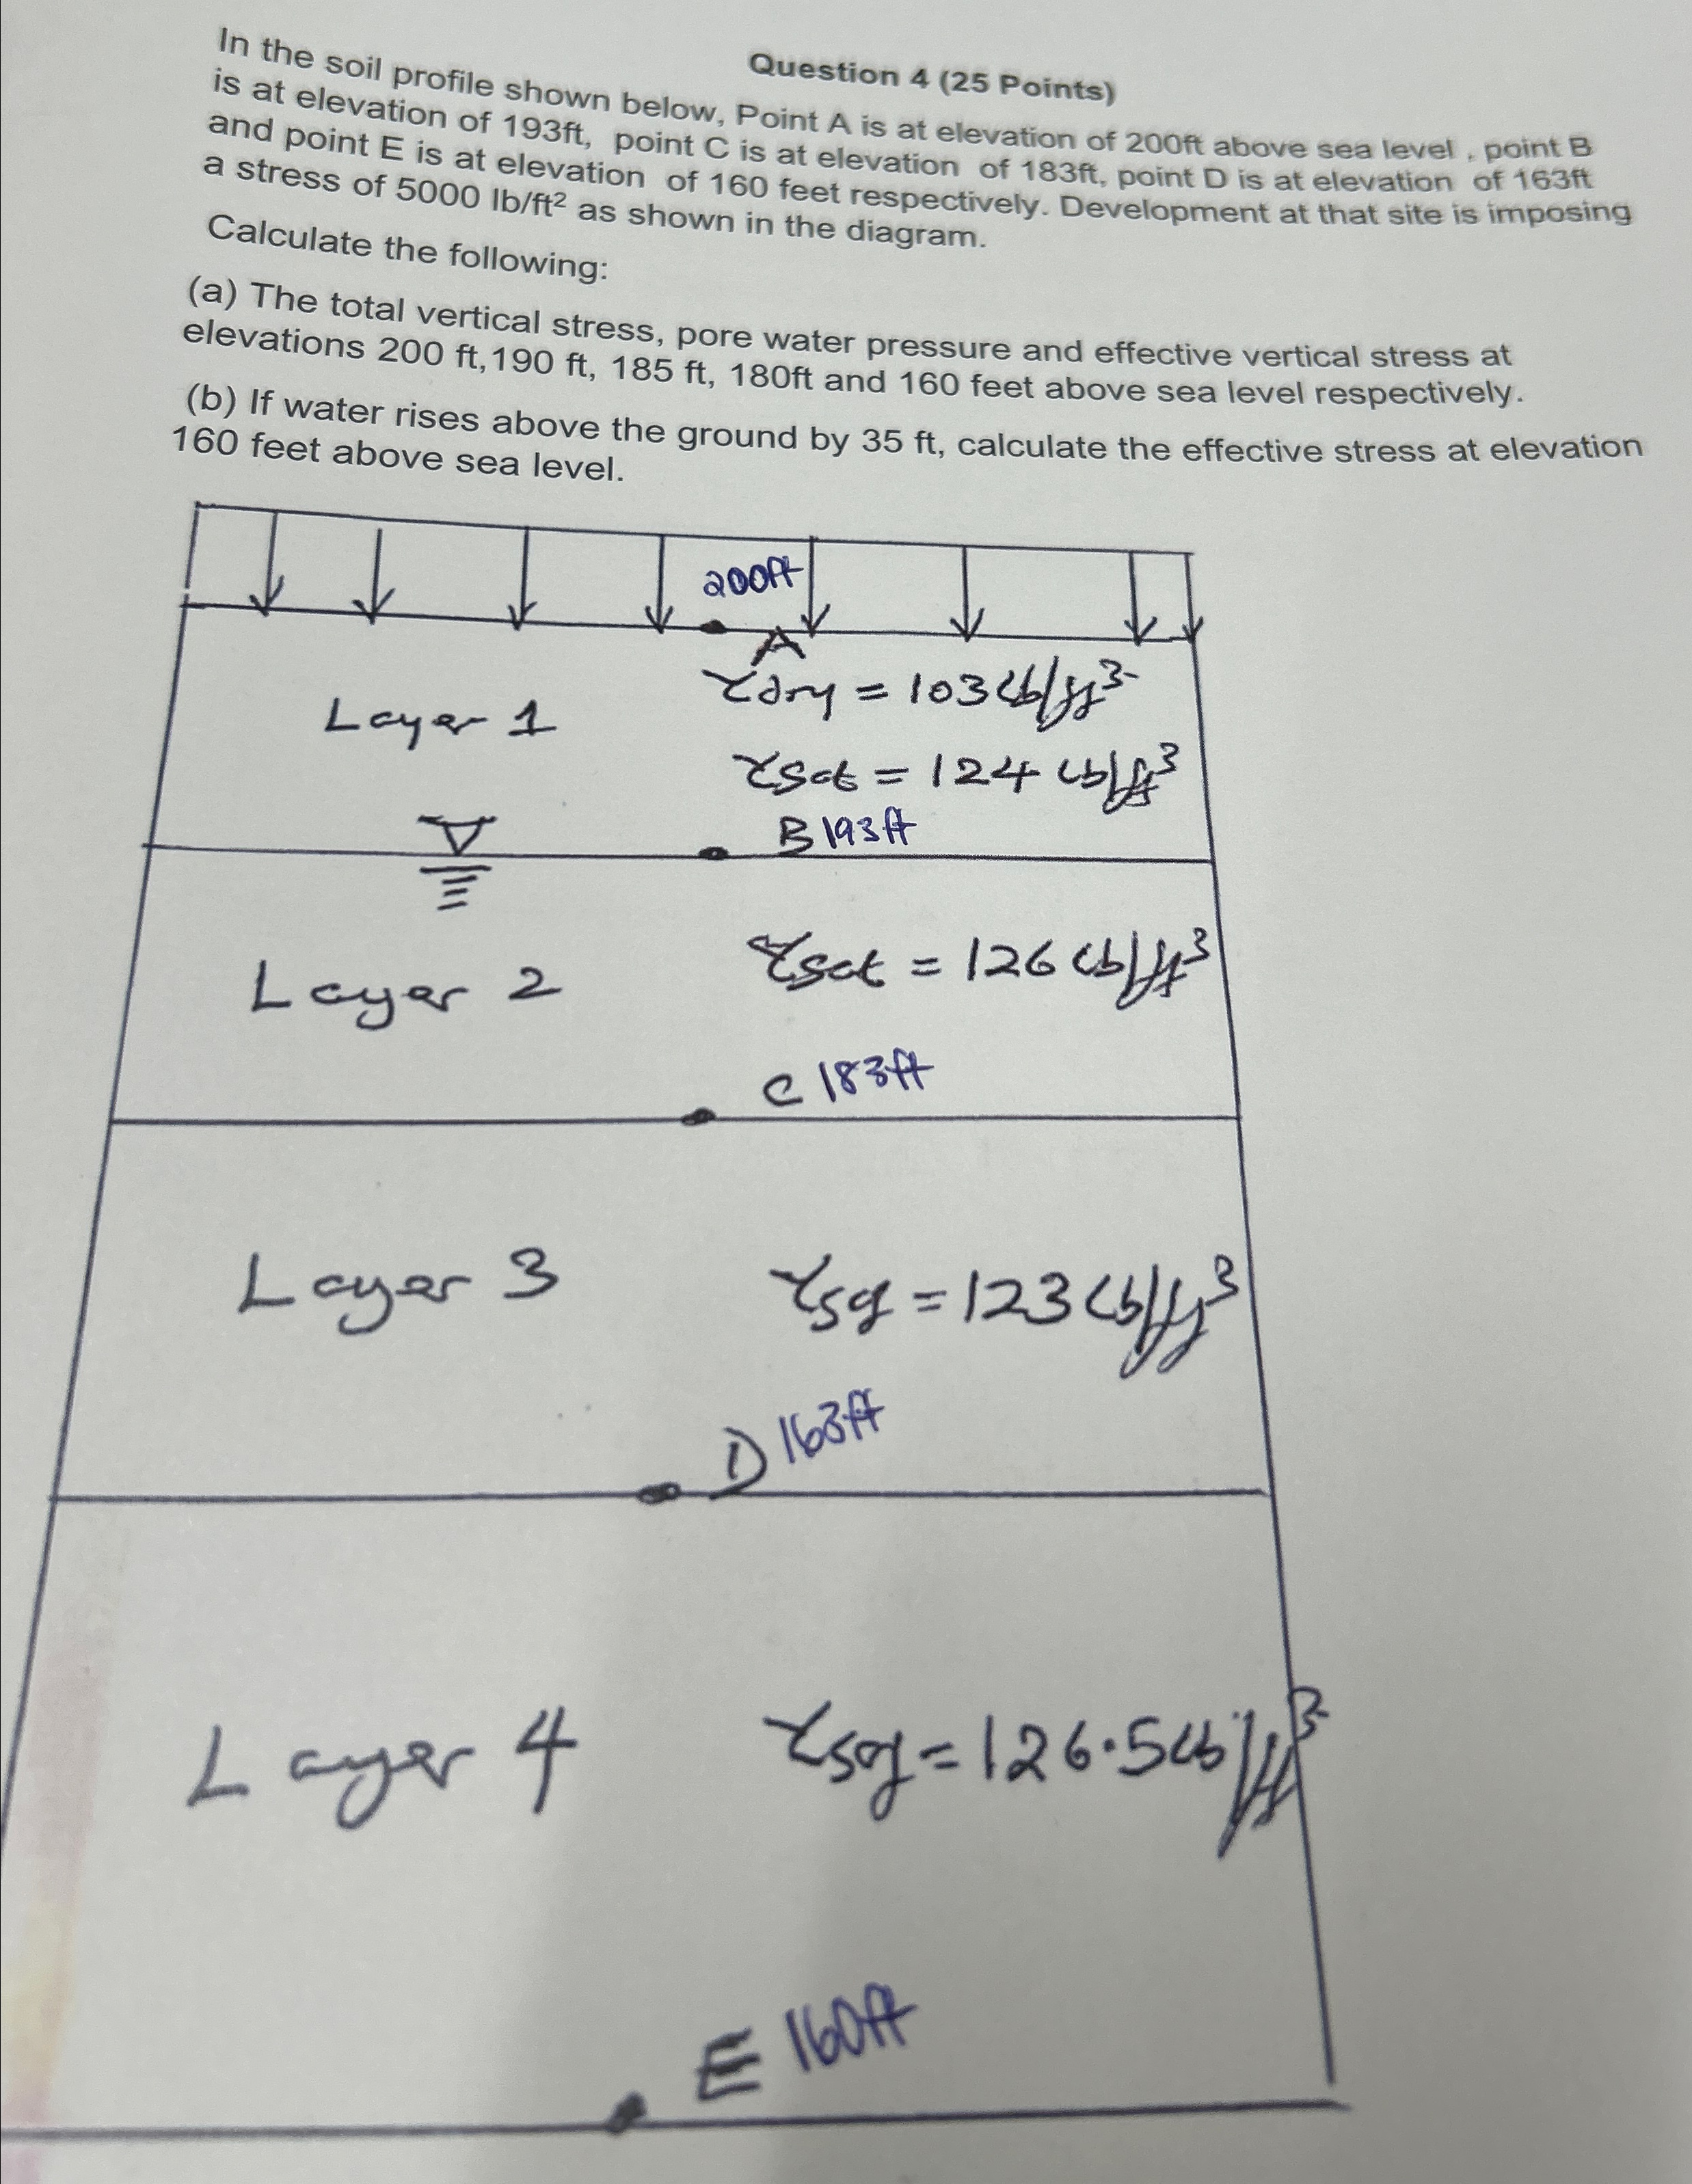 Question 4 (25 Points)
In the soil profile shown below, Point A is at elevation of 200ft above sea level , point B
is at elevation of 193ft, point C is at elevation of 183ft, point D is at elevation of 163ft
and point E is at elevation of 160 feet respectively. Development at that site is imposing
a stress of 5000 lb/ft² as shown in the diagram.
Calculate the following:
(a) The total vertical stress, pore water pressure and effective vertical stress at
elevations 200 ft,190 ft, 185 ft, 180ft and 160 feet above sea level respectively.
(b) If water rises above the ground by 35 ft, calculate the effective stress at elevation
160 feet above sea level.
200ft
A
γdry = 103 lb/ft³
Layer 1
γsat = 124 lb/ft³
B 193ft
γsat = 126 lb/ft³
Layer 2
C 183ft
Layer 3 γsat = 123 lb/ft³
D 163ft
Layer 4 γsat = 126.5 lb/ft³
E 160ft